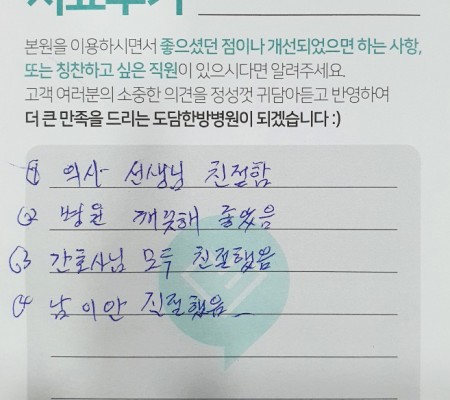 치료후기
본원을 이용하시면서 좋으셨던 점이나 개선되었으면 하는 사항,
또는 칭찬하고 싶은 직원이 있으시다면 알려주세요.
고객 여러분의 소중한 의견을 정성껏 귀담아듣고 반영하여
더 큰 만족을 드리는 도담한방병원이 되겠습니다 :)
① 의사 선생님 친절함
② 병원 깨끗해 좋았음
③ 간호사님 모두 친절했음
④ 남이안 친절했음